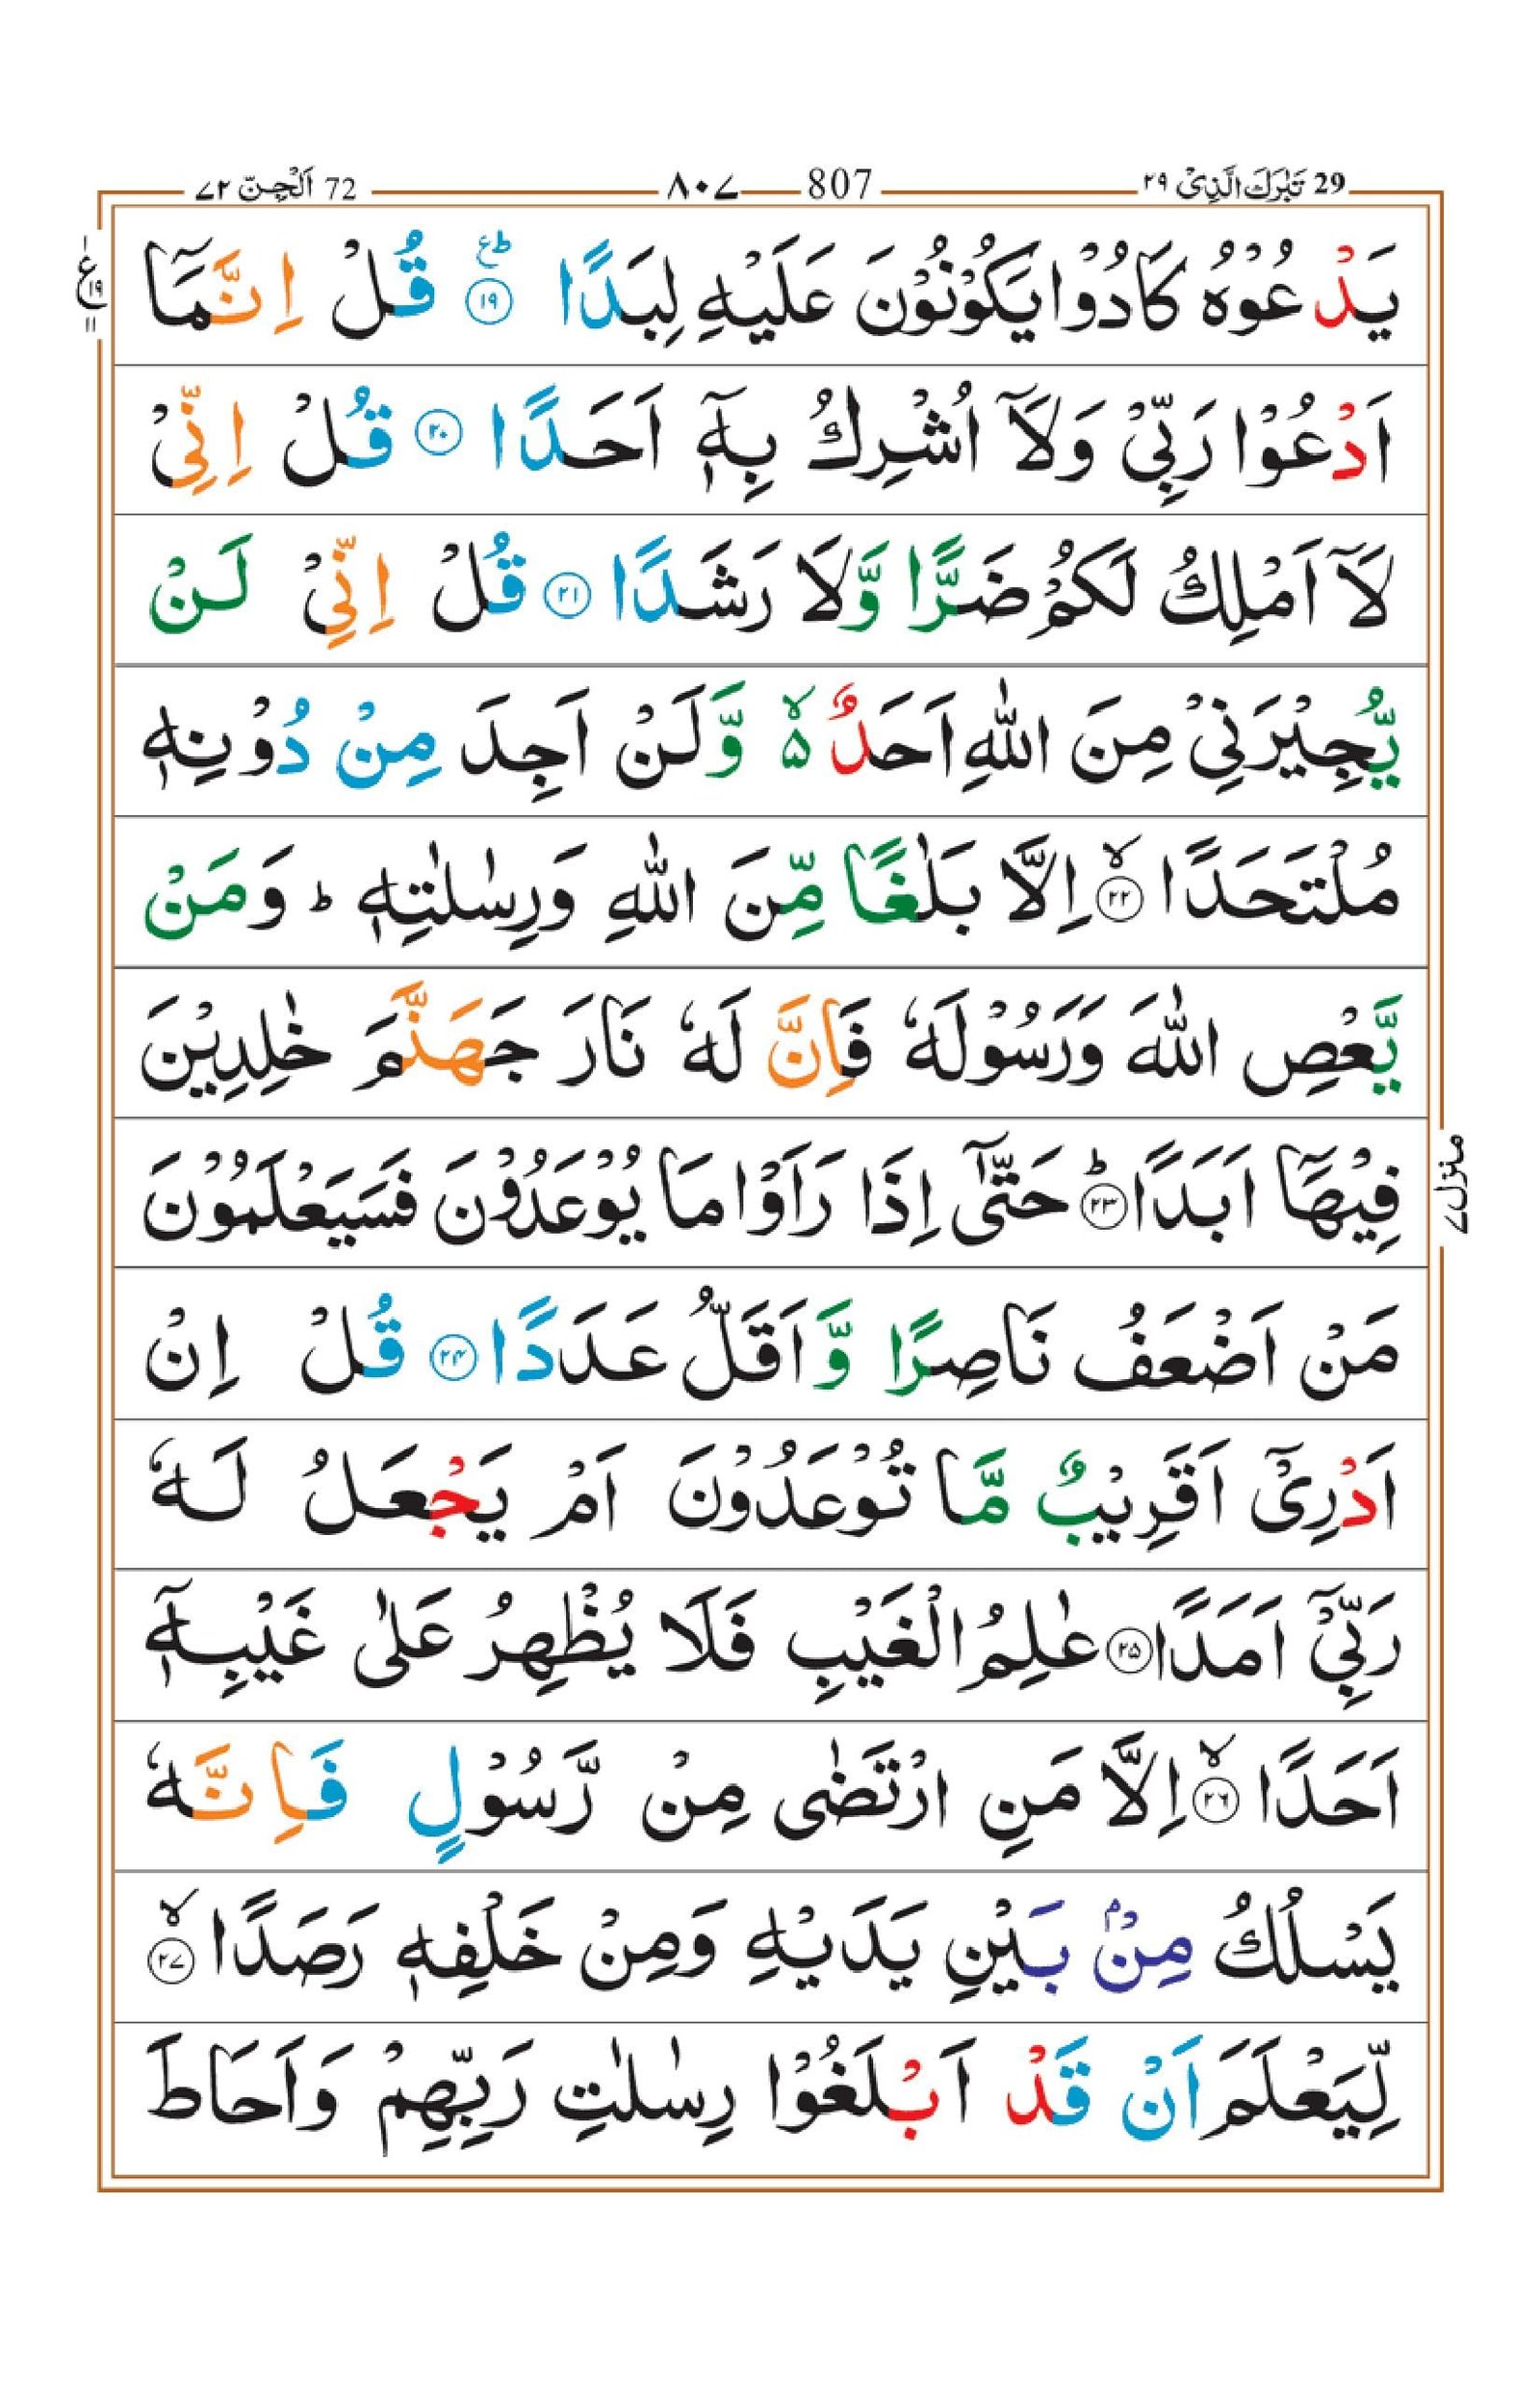 29 تَبٰرَكَ الَّذِىْ ٢٩ 807 ٨٠٧ 72 اَلْجِنّ ٧٢
يَدْعُوْهُ كَادُوْا يَكُوْنُوْنَ عَلَيْهِ لِبَدًا ؕ ع ۱۹ قُلْ اِنَّمَاۤ
١ ع ١٩ ١١
اَدْعُوْا رَبِّىْ وَلَاۤ اُشْرِكُ بِهٖۤ اَحَدًا ۲۰ قُلْ اِنِّىْ
لَاۤ اَمْلِكُ لَكُمْ ضَرًّا وَّلَا رَشَدًا ۲۱ قُلْ اِنِّىْ لَنْ
يُّجِيْرَنِىْ مِنَ اللّٰهِ اَحَدٌ ۙ ۵ وَّلَنْ اَجِدَ مِنْ دُوْنِهٖ
مُلْتَحَدًا ۙ ۲۲ اِلَّا بَلٰغًا مِّنَ اللّٰهِ وَرِسٰلٰتِهٖ ؕ وَمَنْ
يَّعْصِ اللّٰهَ وَرَسُوْلَهٗ فَاِنَّ لَهٗ نَارَ جَهَنَّمَ خٰلِدِيْنَ
فِيْهَاۤ اَبَدًا ؕ ۲۳ حَتّٰۤى اِذَا رَاَوْا مَا يُوْعَدُوْنَ فَسَيَعْلَمُوْنَ
منزل ٧
مَنْ اَضْعَفُ نَاصِرًا وَّاَقَلُّ عَدَدًا ۲۴ قُلْ اِنْ
اَدْرِىْۤ اَقَرِيْبٌ مَّا تُوْعَدُوْنَ اَمْ يَجْعَلُ لَهٗ
رَبِّىْۤ اَمَدًا ۲۵ عٰلِمُ الْغَيْبِ فَلَا يُظْهِرُ عَلٰى غَيْبِهٖۤ
اَحَدًا ۙ ۲۶ اِلَّا مَنِ ارْتَضٰى مِنْ رَّسُوْلٍ فَاِنَّهٗ
يَسْلُكُ مِنْۢ بَيْنِ يَدَيْهِ وَمِنْ خَلْفِهٖ رَصَدًا ۙ ۲۷
لِّيَعْلَمَ اَنْ قَدْ اَبْلَغُوْا رِسٰلٰتِ رَبِّهِمْ وَاَحَاطَ